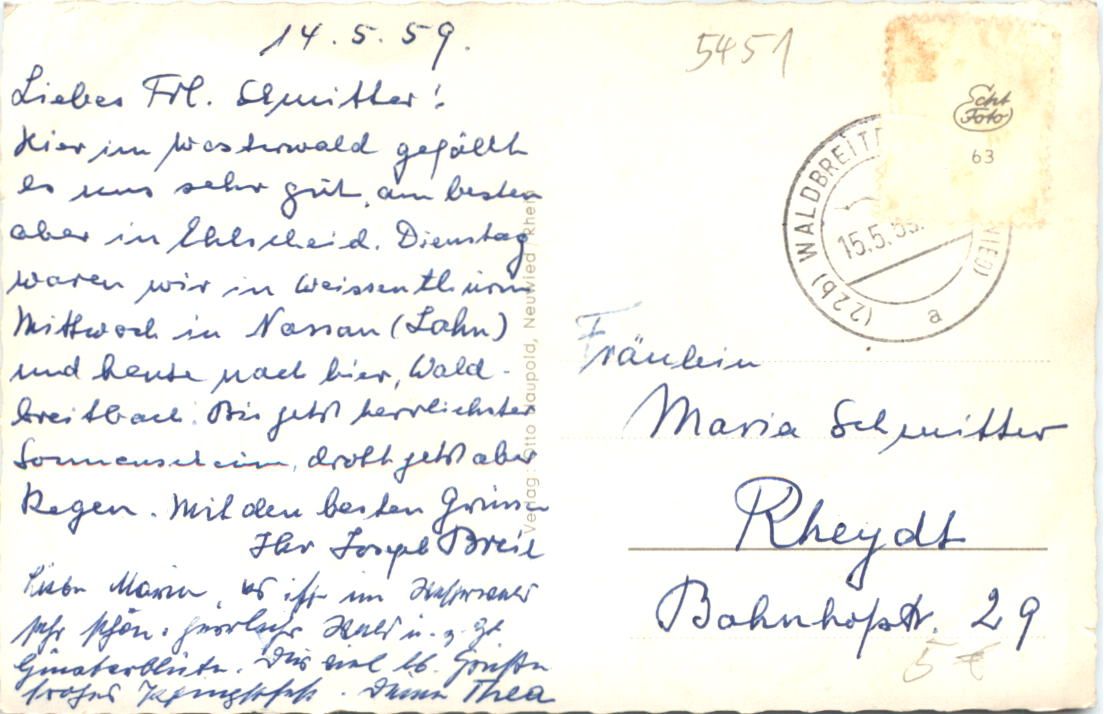 14.5.59.
Liebes Frl. Schmitter!
Hier im Westerwald gefällt
es uns sehr gut, am besten
aber in Ehlscheid. Dienstag
waren wir in Weissenthurm
Mittwoch in Nassau (Lahn)
und heute nach hier, Wald-
breitbach. Bis jetzt herrlichster
Sonnenschein, droht jetzt aber
Regen. Mit den besten Grüssen
Ihr Joseph Breil
Liebe Maria, es ist im Westerwald
sehr schön. herrlicher Wald u. z. Zt
Ginsterblüte. Dir viel lb. Grüße
frohes Pfingstfest. Deine Thea
Verlag: Otto Haupold, Neuwied/Rhein
5451
Echt
Foto
63
(22b) WALDBREITB
WIED)
15.5.59.
a
Fräulein
Maria Schmitter
Rheydt
Bahnhofstr. 29
5 €